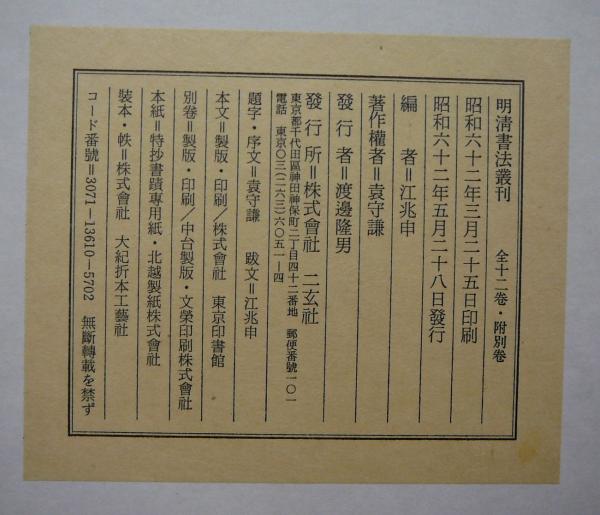 明清書法叢刊　全十二卷・附別卷
昭和六十二年三月二十五日印刷
昭和六十二年五月二十八日發行
編　者＝江兆申
著作權者＝袁守謙
發行者＝渡邊隆男
發行所＝株式會社　二玄社
東京都千代田區神田神保町二丁目四十二番地　郵便番號一〇一
電話　東京〇三(二六三)六〇五一―四
題字・序文＝袁守謙　跋文＝江兆申
本文＝製版・印刷／株式會社　東京印書館
別卷＝製版・印刷／中台製版・文榮印刷株式會社
本紙＝特抄書蹟專用紙・北越製紙株式會社
裝本・帙＝株式會社　大紀折本工藝社
コード番號＝3071―13610―5702　無斷轉載を禁ず